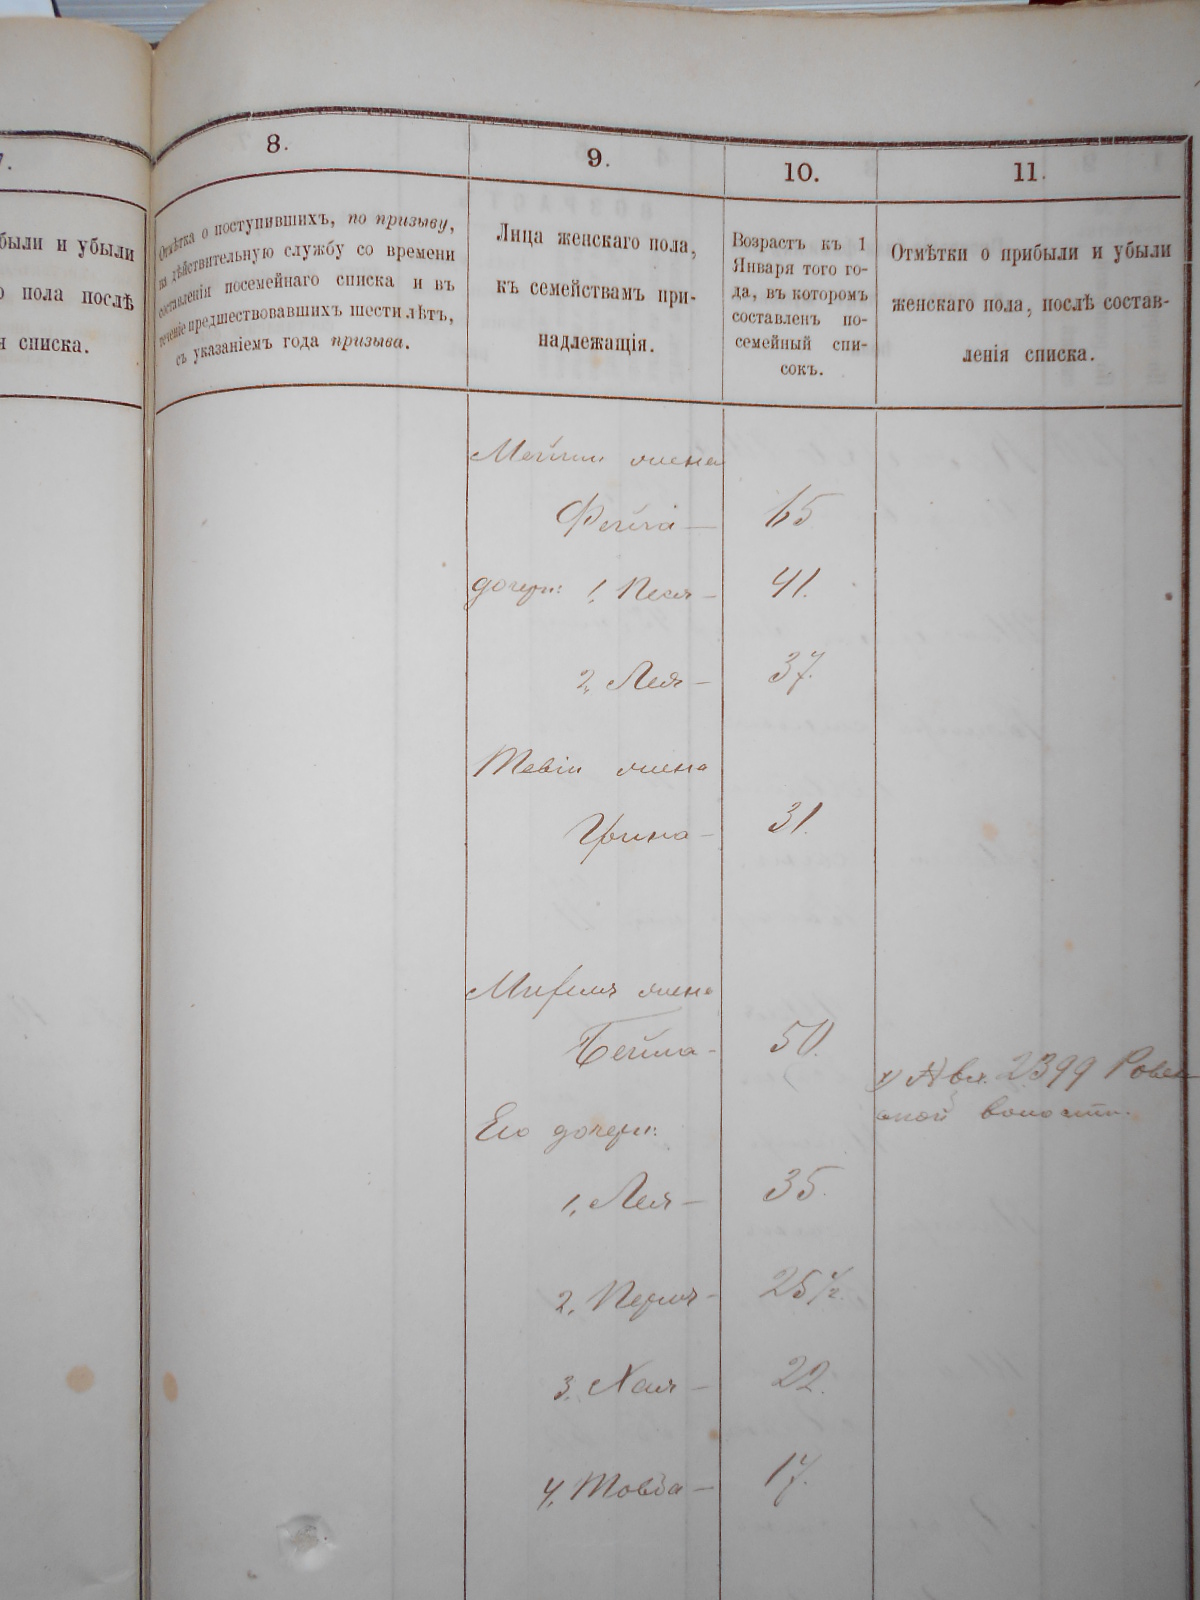 7.
были и убыли
о пола послѣ
я списка.
8.
Отмѣтка о поступившихъ, по призыву,
на дѣйствительную службу со времени
составленія посемейнаго списка и въ
теченіе предшествовавшихъ шести лѣтъ,
съ указаніемъ года призыва.
9.
Лица женскаго пола,
къ семействамъ при-
надлежащія.
10.
Возрастъ къ 1
Января того го-
да, въ которомъ
составленъ по-
семейный спи-
сокъ.
11.
Отмѣтки о прибыли и убыли
женскаго пола, послѣ состав-
ленія списка.
жена
65
дочери: 1, Песя — 41.
2, Лея — 37.
Тевіи жена
31.
жена
Бейла — 50.
2399
волости.
Его дочери:
1, Лея — 35.
2, Перля — 25½.
3, Хая — 22.
4, Товба — 17.